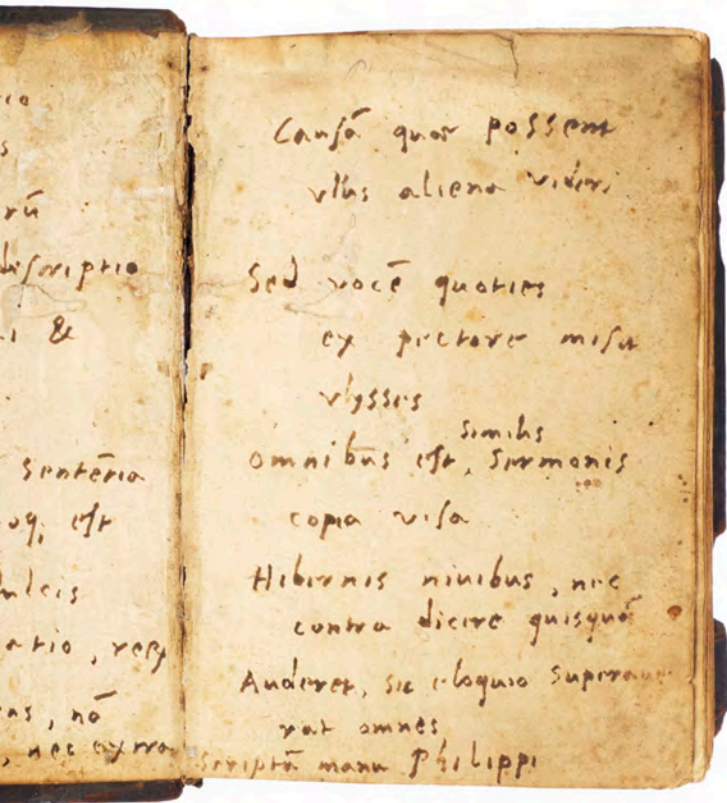 rū
descriptio
&
sentētia
est
dulcis
atio,
nō
, nec extra
Causā quae possent
ullis aliena videri
Sed vocē quoties
ex pectore misit
vlysses
similis
omnibus est, sermonis
copia visa
Hibernis niuibus, nec
contra dicere quisquā
Auderet, sic eloquio superaue
rat omnes
scriptū manu Philippi